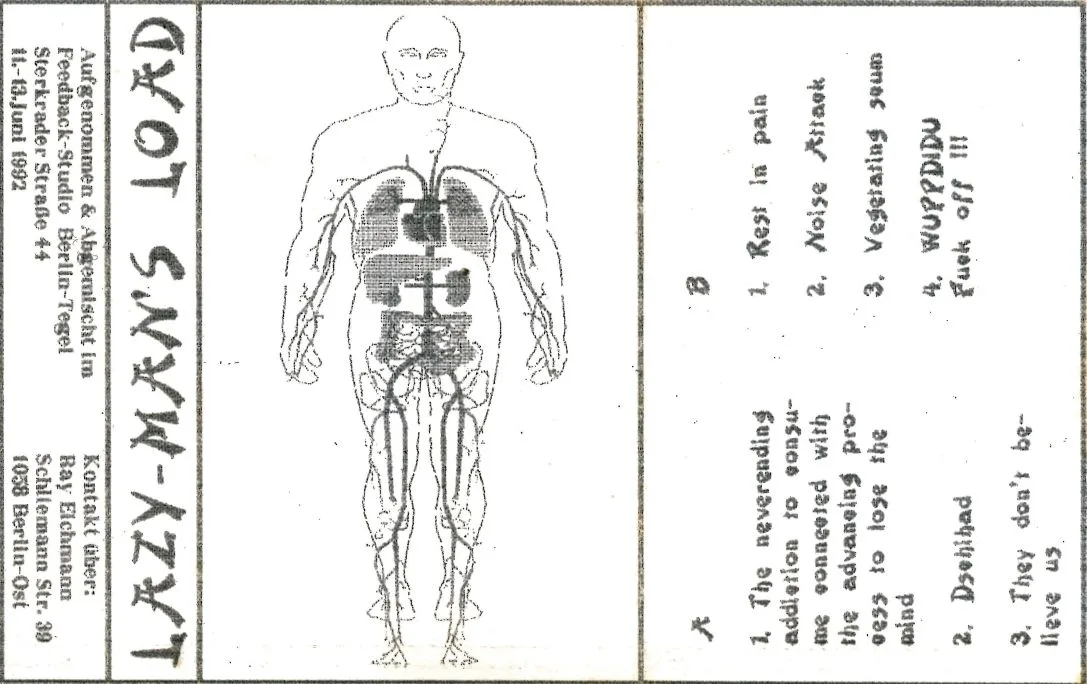 Aufgenommen & Abgemischt im
Feedback-Studio Berlin-Tegel
Sterkrader Straße 44
11.-13.Juni 1992
Kontakt über:
Ray Eichmann
Schliemann Str. 39
1058 Berlin-Ost
LAZY-MAN'S LOAD
A
1. The neverending
addiction to consu-
me connected with
the advancing pro-
cess to lose the
mind
2. Dschihad
3. They don't be-
lieve us
B
1. Rest in pain
2. Noise Attack
3. Vegetating scum
4. WUPPDIDU
Fuck off !!!